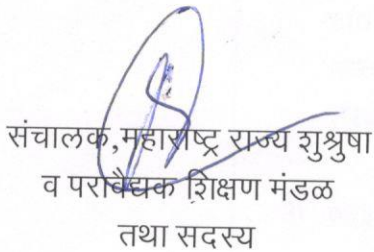 संचालक,महाराष्ट्र राज्य शुश्रुषा
व परावैद्यक शिक्षण मंडळ
तथा सदस्य